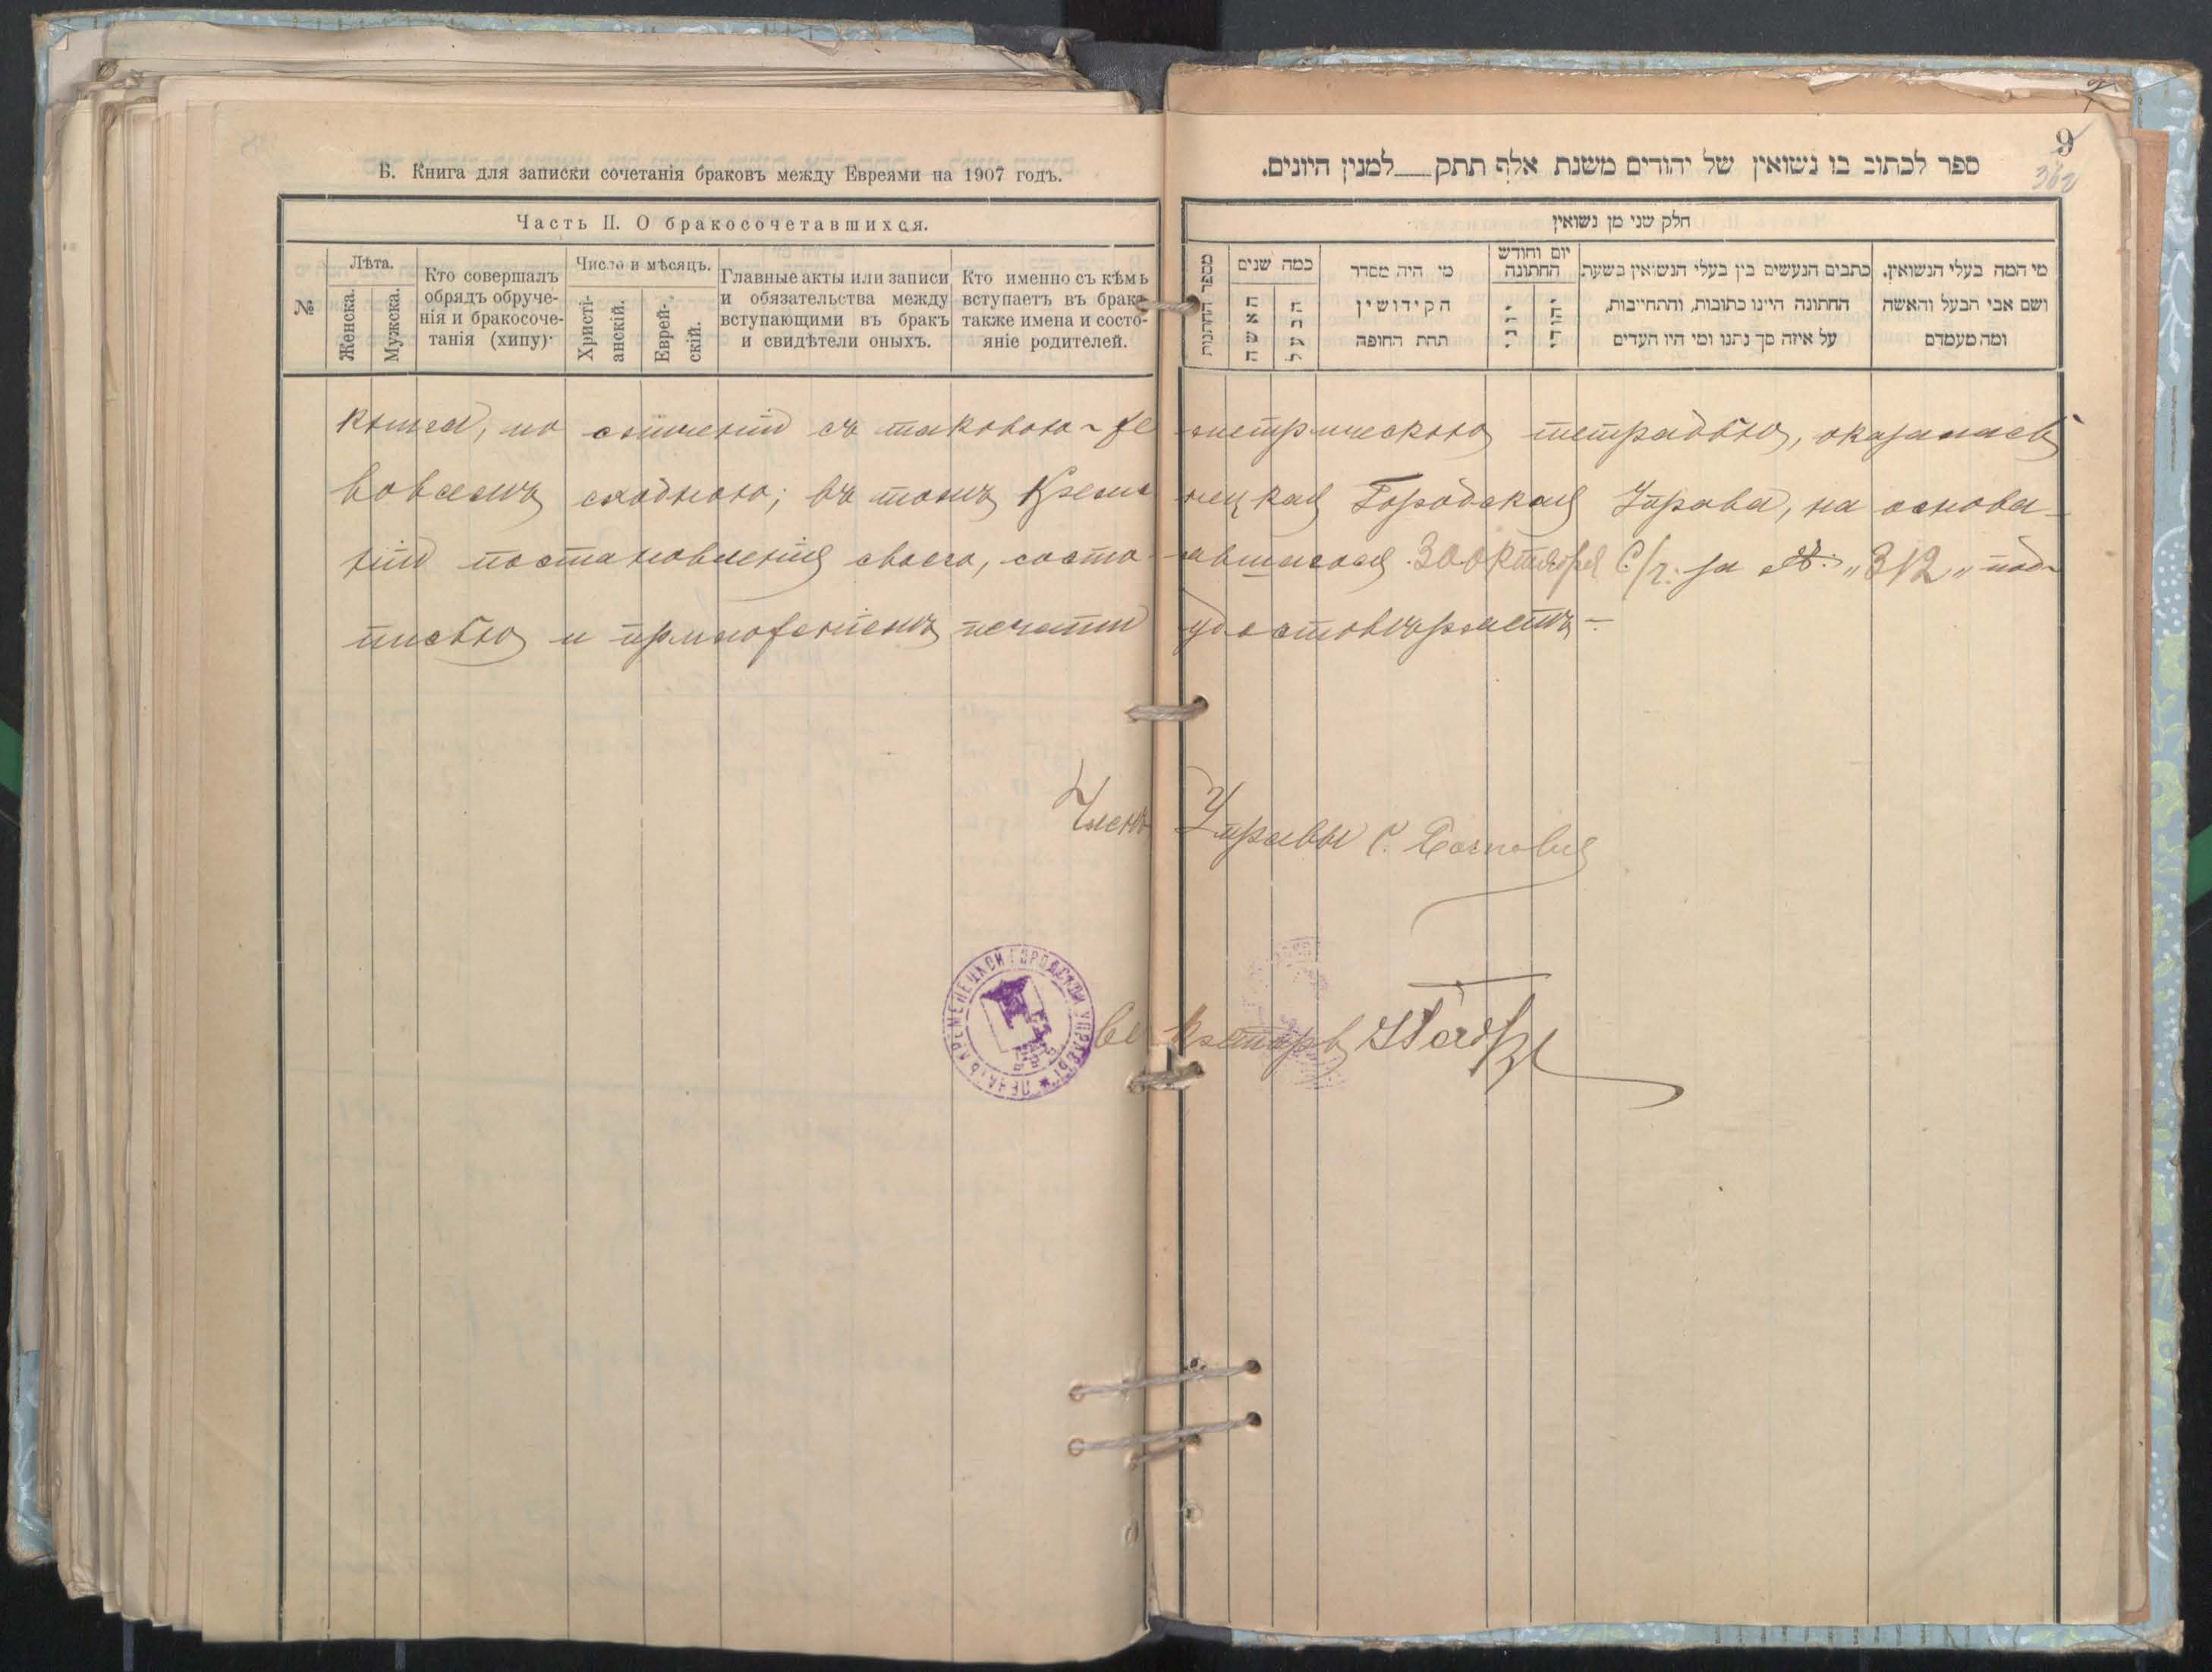 Б. Книга для записки сочетанія браковъ между Евреями на 1907 годъ.
Часть II. О бракосочетавшихся.
№
Лѣта.
Женска.
Мужска.
Кто совершалъ
обрядъ обруче-
нія и бракосоче-
танія (хипу)
Число и мѣсяцъ.
Христі-
анскій.
Еврей-
скій.
Главные акты или записи
и обязательства между
вступающими въ бракъ
и свидѣтели оныхъ.
Кто именно съ кѣмъ
вступаетъ въ бракъ
также имена и состо-
яніе родителей.
9
362
ספר לכתוב בו נשואין של יהודים משנת אלף תתק__למנין היונים.
חלק שני מן נשואין
מספר החתנות
כמה שנים
האשה
הבעל
מי היה מסדר
הקידושין
תחת החופה
יום וחודש
החתונה
יוני
יהודי
כתבים הנעשים בין בעלי הנשואין בשעת
החתונה היינו כתובות, והתחייבות,
על איזה סך נתנו ומי היו העדים
מי המה בעלי הנשואין,
ושם אבי הבעל והאשה
ומה מעמדם
книга, по сличеніи съ таковою-же метрическою тетрадью, оказалась
во всемъ сходною; въ томъ Кременецкая Городская Управа, на основа-
ніи постановленія своего, состоявшагося 30 Октября С/г. за № "312" под-
писью и приложеніемъ печати удостовѣряетъ-
Членъ Управы
Секретарь
ПЕЧАТЬ КРЕМЕНЕЦКОЙ ГОРОДСКОЙ УПРАВЫ